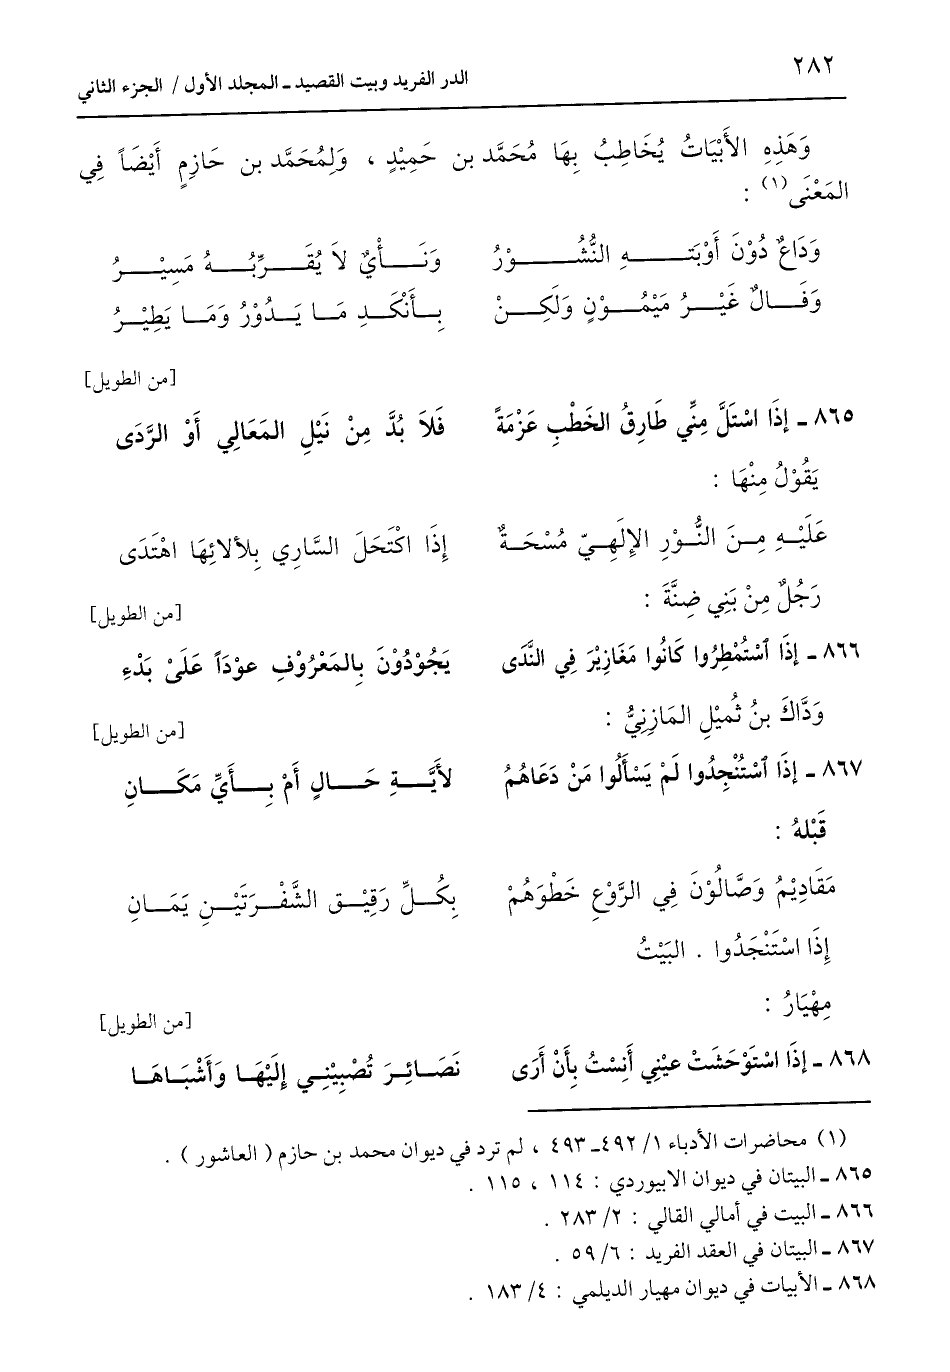 ٢٨٢
الدر الفريد وبيت القصيد ـ المجلد الأول / الجزء الثاني
وَهَذِهِ الأَبْيَاتُ يُخَاطِبُ بِهَا مُحَمَّد بن حَمِيْدٍ ، وَلِمُحَمَّد بن حَازِمٍ أَيْضَاً فِي
المَعْنَى(١) :
وَدَاعٌ دُوْنَ أَوْبَتـــهِ النُّشُـــوْرُ وَنَـــأْيٌ لاَ يُقَـــرِّبُـــهُ مَسِيْـــرُ
وَفَـــالٌ غَيْـــرُ مَيْمُـــوْنٍ وَلَكِـــنْ بِـــأَنْكَـــدِ مَـــا يَـــدُوْرُ وَمَـــا يَطِيْـــرُ
[من الطويل]
٨٦٥ ـ إِذَا اسْتَلَّ مِنِّي طَارِقُ الخَطْبِ عَزْمَةً فَلاَ بُدَّ مِنْ نَيْلِ المَعَالِي أَوْ الرَّدَى
يَقُوْلُ مِنْهَا :
عَلَيْـهِ مِـنَ النُّـوْرِ الإِلَهِـيّ مُسْحَـةٌ إِذَا اكْتَحَلَ السَّارِي بِلأَلائِهَا اهْتَدَى
رَجُلٌ مِنْ بَنِي ضِنَّةَ :
[من الطويل]
٨٦٦ ـ إِذَا ٱسْتُمْطِرُوا كَانُوا مَغَازِيْرَ فِي النَّدَى يَجُوْدُوْنَ بِالمَعْرُوْفِ عوْدَاً عَلَىْ بَدْءِ
وَدَّاكَ بنُ ثُمِيْلٍ المَازِنِيُّ :
[من الطويل]
٨٦٧ ـ إِذَا ٱسْتُنْجِدُوا لَمْ يَسْأَلُوا مَنْ دَعَاهُمُ لأَيَّـــةِ حَـــالٍ أَمْ بِـــأَيِّ مَكَـــانِ
قَبْلهُ :
مَقَادِيْمُ وَصَّالُوْنَ فِي الرَّوْعِ خَطْوَهُمْ بِكُـــلِّ رَقِيْـــقِ الشَّفْـــرَتَيْـــنِ يَمَـــانِ
إِذَا اسْتَنْجَدُوا . البَيْتُ
مِهْيَارُ :
[من الطويل]
٨٦٨ ـ إِذَا اسْتَوْحَشَتْ عيْنِي أَنِسْتُ بِأَنْ أَرَى نَصَـائِـرَ تُصْبِيْنِـي إِلَيْهَـا وَأَشْبَـاهَـا
(١) محاضرات الأدباء ١/ ٤٩٢ـ ٤٩٣ ، لم ترد في ديوان محمد بن حازم ( العاشور ) .
٨٦٥ ـ البيتان في ديوان الابيوردي : ١١٤ ، ١١٥ .
٨٦٦ ـ البيت في أمالي القالي : ٢/ ٢٨٣ .
٨٦٧ ـ البيتان في العقد الفريد : ٦/ ٥٩ .
٨٦٨ ـ الأبيات في ديوان مهيار الديلمي : ٤/ ١٨٣ .